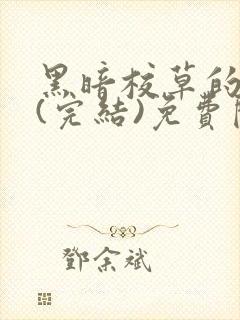 黑暗校草的
(完結)免費
鄧余斌